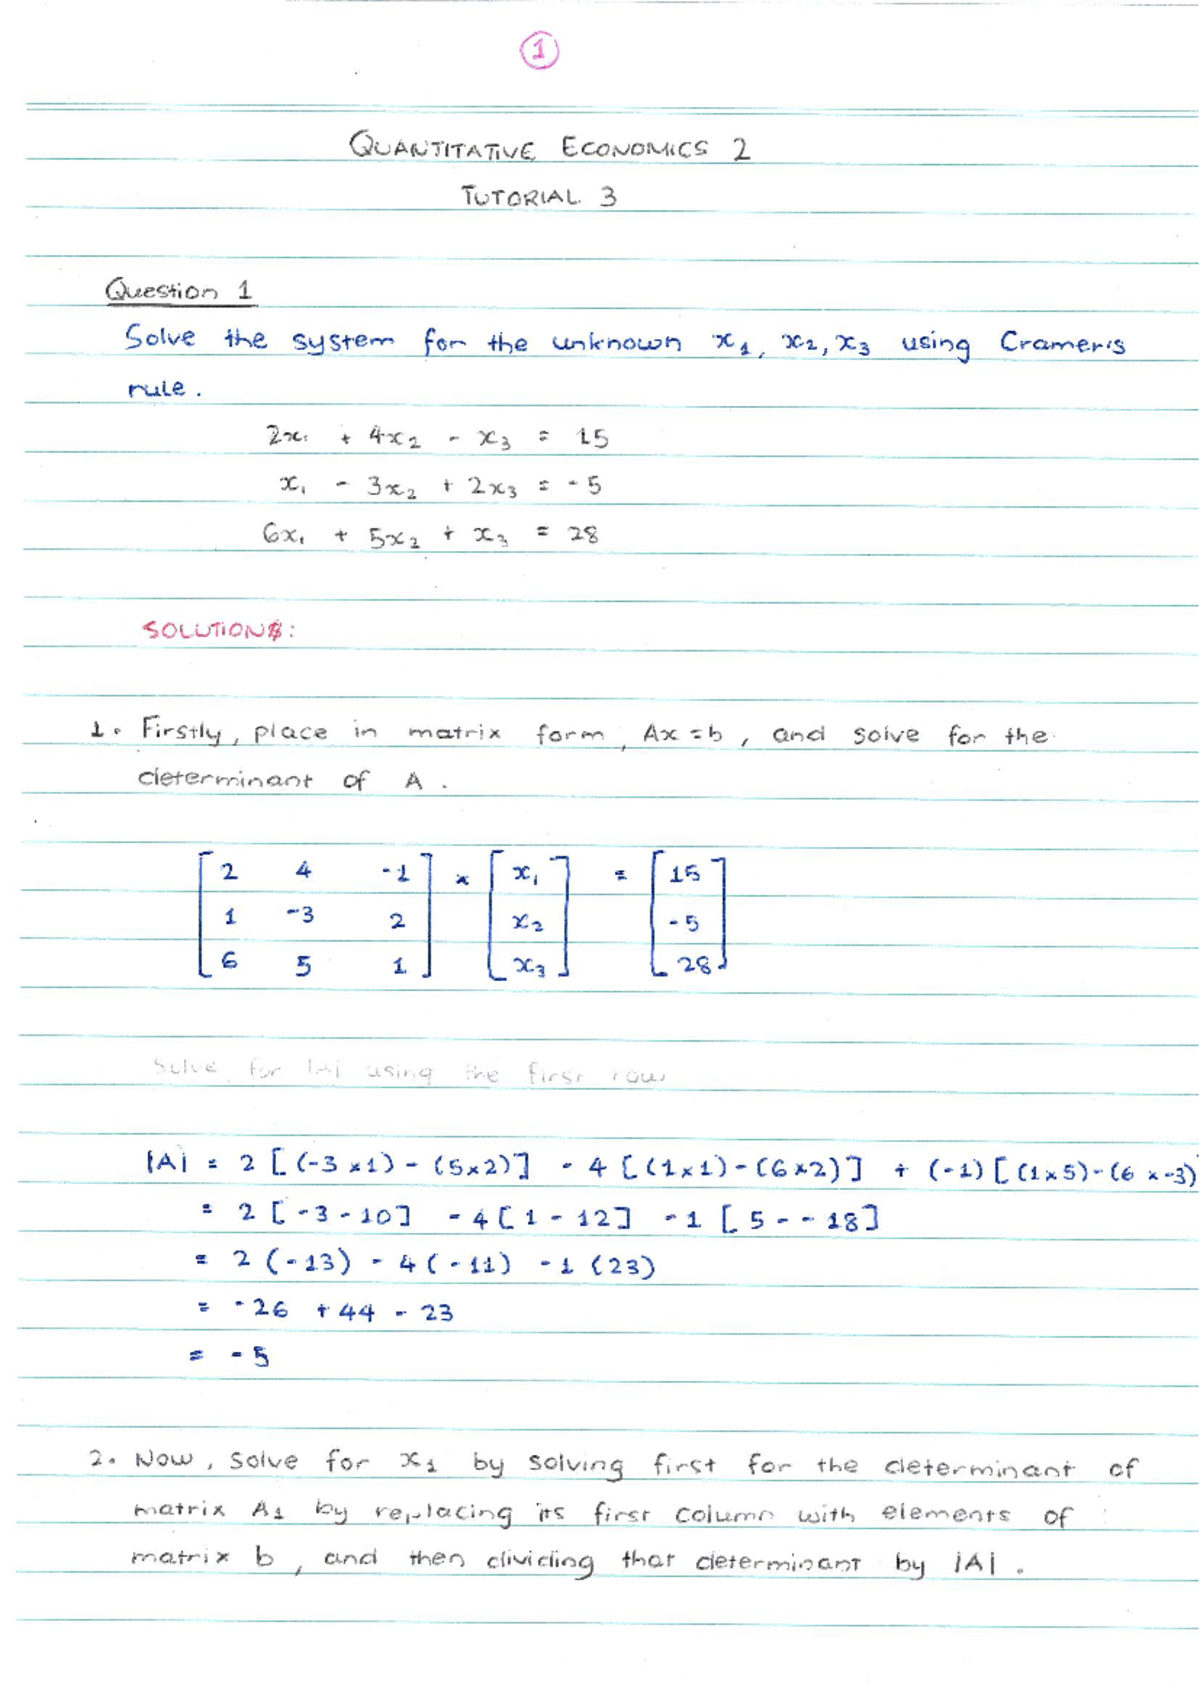 1
QUANTITATIVE ECONOMICS 2
TUTORIAL 3
Question 1
Solve the system for the unknown x₁, x₂, x₃ using Cramer's
rule.
2x₁ + 4x₂ - x₃ = 15
x₁ - 3x₂ + 2x₃ = -5
6x₁ + 5x₂ + x₃ = 28
SOLUTIONS:
1. Firstly, place in matrix form, Ax = b, and solve for the
determinant of A.
[2 4 -1] × [x₁] = [15]
[1 -3 2] [x₂] [-5]
[6 5 1] [x₃] [28]
Solve for |A| using the first row
|A| = 2[(-3×1) - (5×2)] - 4[(1×1) - (6×2)] + (-1)[(1×5) - (6×-3)]
= 2[-3-10] - 4[1-12] - 1[5--18]
= 2(-13) - 4(-11) - 1(23)
= -26 + 44 - 23
= -5
2. Now, solve for x₁ by solving first for the determinant of
matrix A₁ by replacing its first column with elements of
matrix b, and then dividing that determinant by |A|.